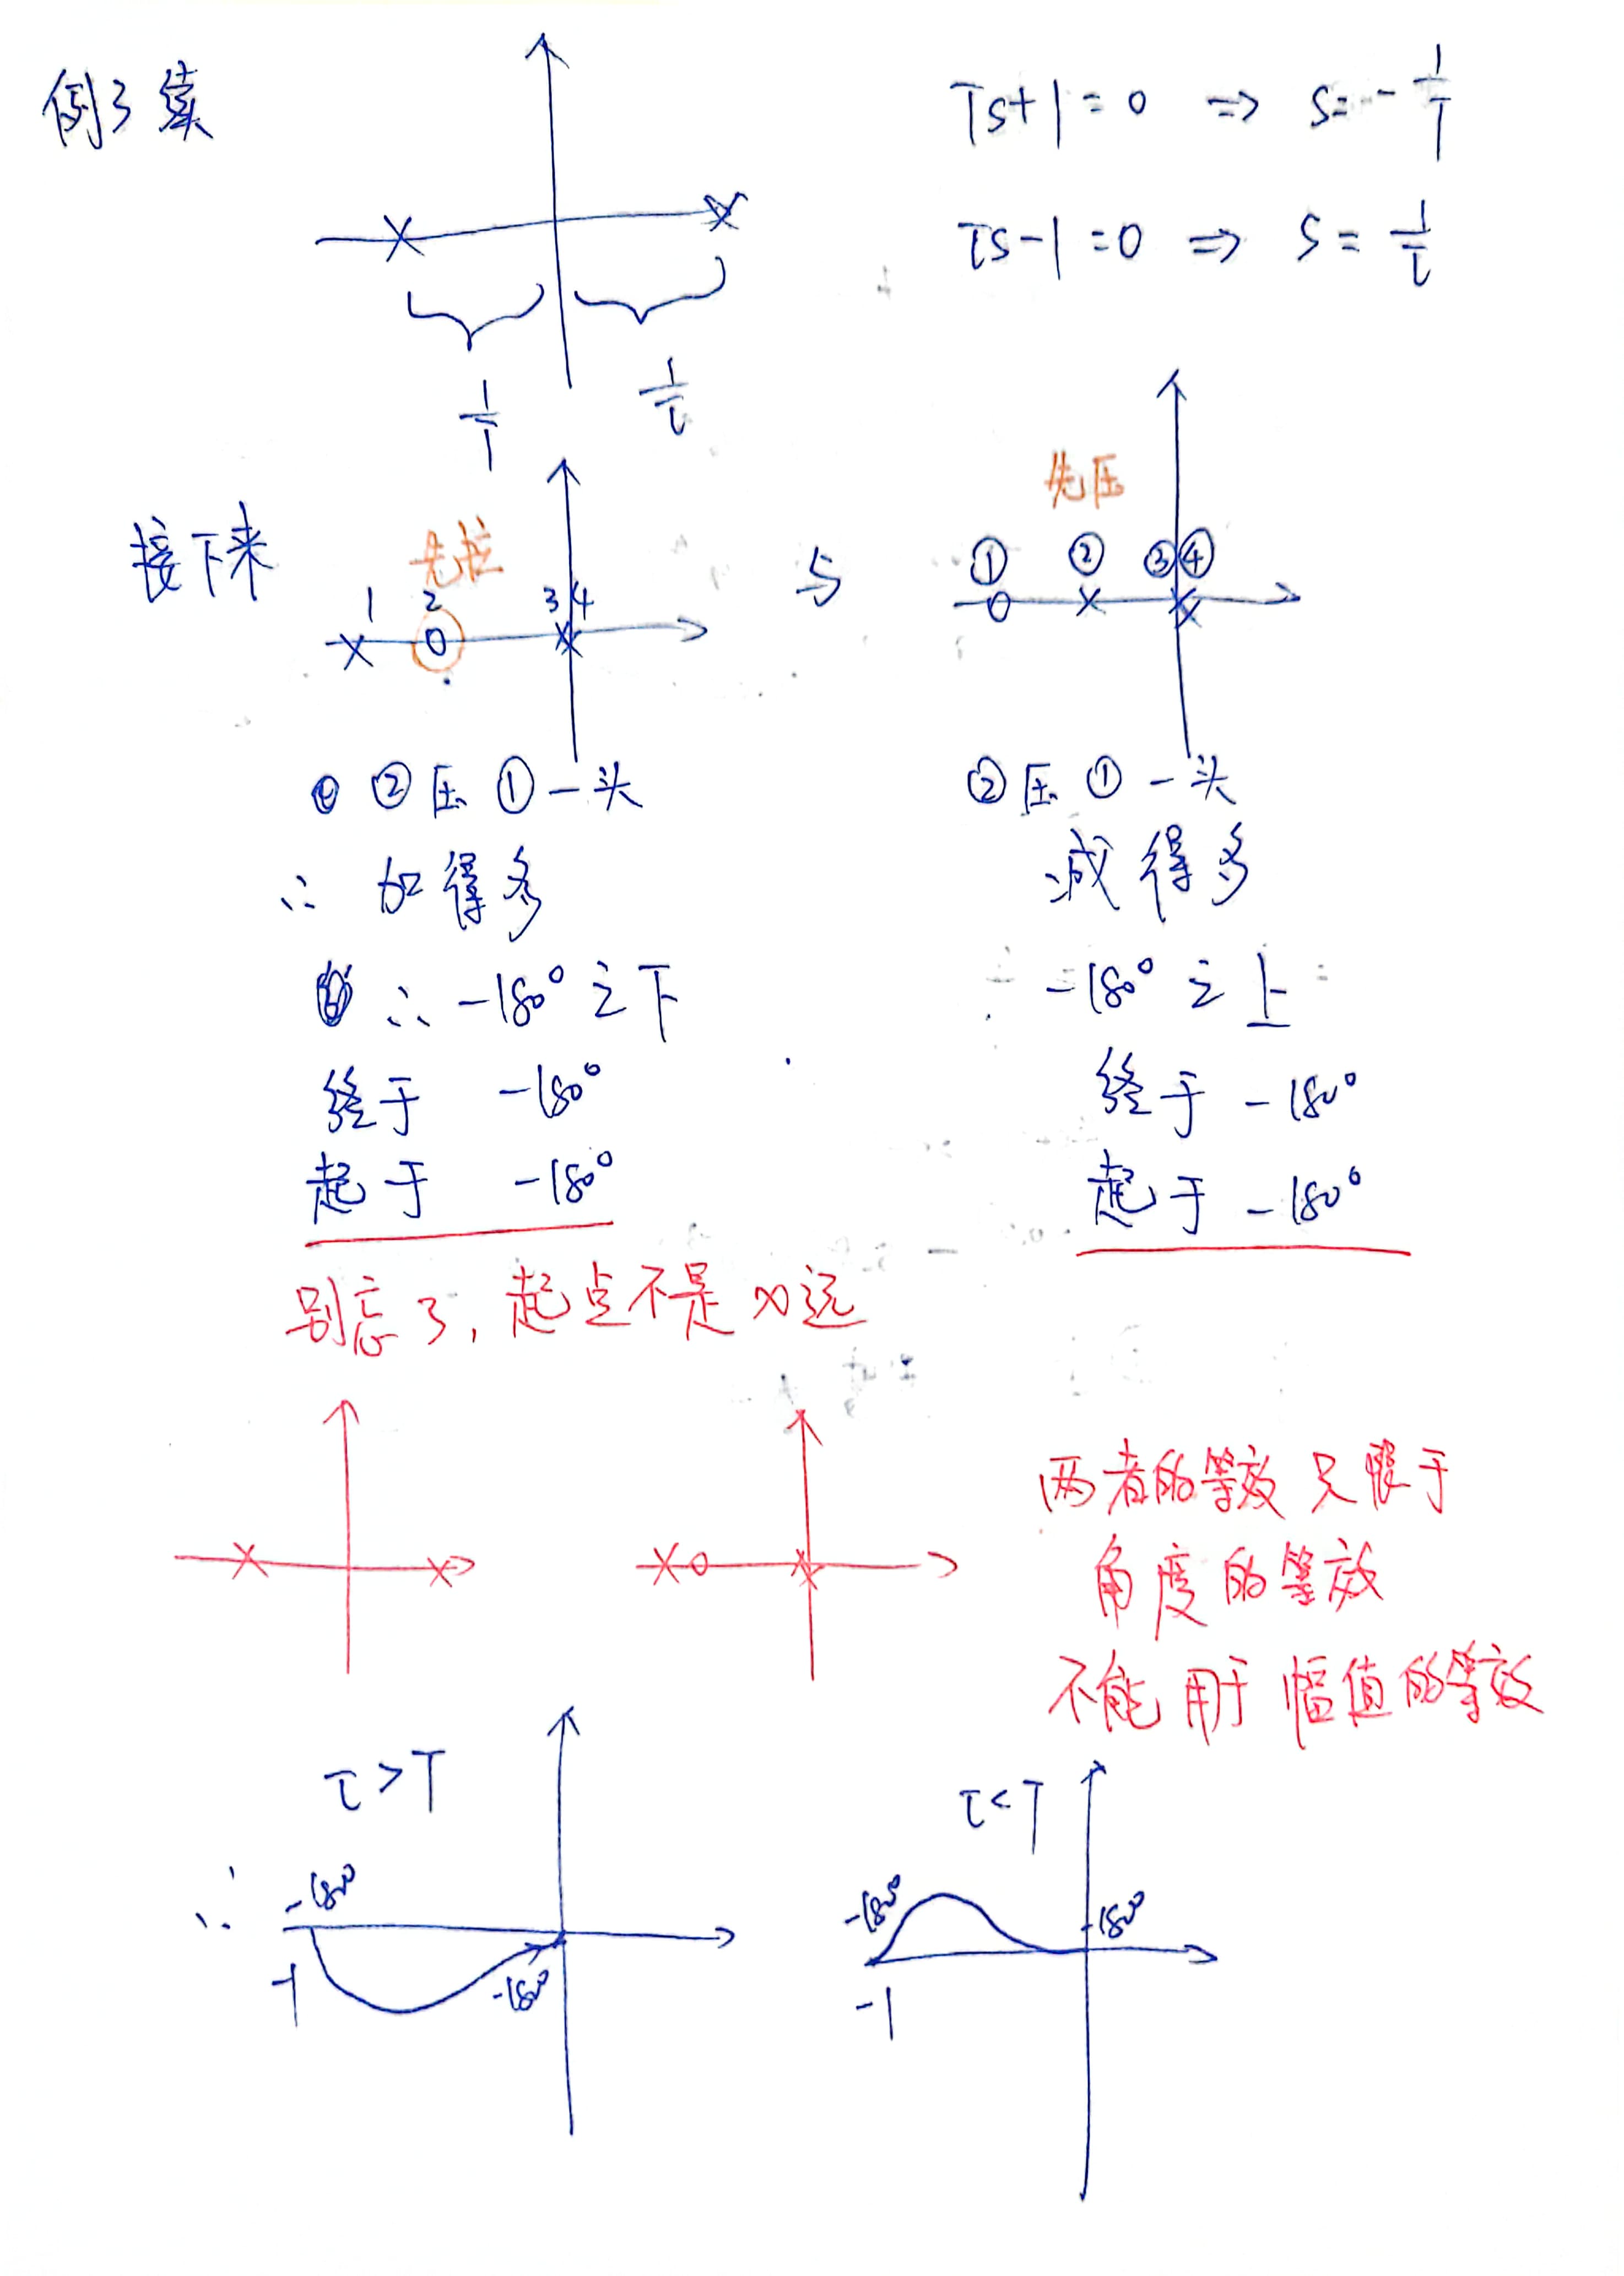 例3续
Ts+1=0 ⇒ s=-1/T
τs-1=0 ⇒ s=1/τ
1/T
1/τ
接下来
先拉
1 2 3 4
与
先压
① ② ③ ④
② 压 ① 一头
∴ 加得多
∴ -180° 之下
终于 -180°
起于 -180°
② 压 ① 一头
减得多
-180° 之上
终于 -180°
起于 -180°
别忘了, 起点不是 ∞远
两者的等效 只限于
角度的等效
不能 用于 幅值的等效
τ>T
∴ -180°
-1
-180°
τ<T
-180°
-180°
-1